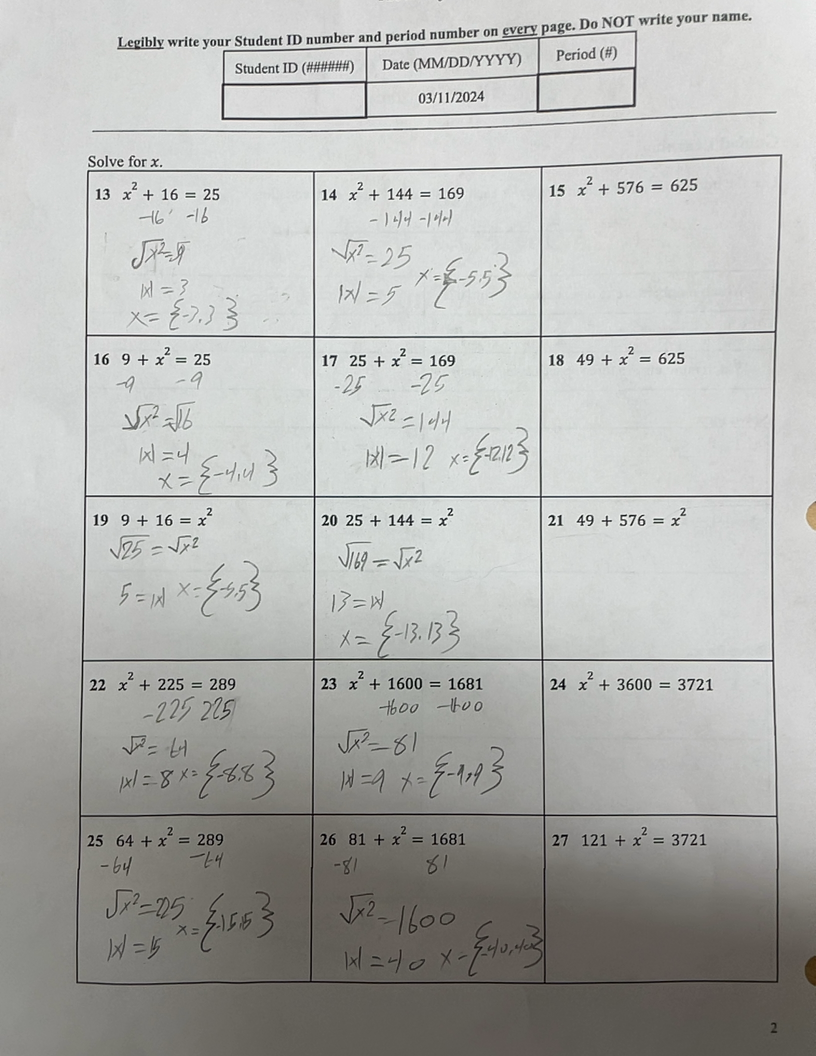 Legibly write your Student ID number and period number on every page. Do NOT write your name.
Student ID (######) Date (MM/DD/YYYY) Period (#)
03/11/2024
Solve for x.
13 x² + 16 = 25
-16 -16
√x²=√9
|x| = 3
x = {-3,3}
14 x² + 144 = 169
-144 -144
√x² = 25
|x| = 5 x = {-5,5}
15 x² + 576 = 625
16 9 + x² = 25
-9 -9
√x² = √16
|x| = 4
x = {-4,4}
17 25 + x² = 169
-25 -25
√x² = 144
|x| = 12 x = {-12,12}
18 49 + x² = 625
19 9 + 16 = x²
√25 = √x²
5 = |x| x = {-5,5}
20 25 + 144 = x²
√169 = √x²
13 = |x|
x = {-13,13}
21 49 + 576 = x²
22 x² + 225 = 289
-225 225
√x² = 64
|x| = 8 x = {-8,8}
23 x² + 1600 = 1681
-1600 -1600
√x² = 81
|x| = 9 x = {-9,9}
24 x² + 3600 = 3721
25 64 + x² = 289
-64 -64
√x² = 225
|x| = 15 x = {-15,15}
26 81 + x² = 1681
-81 81
√x² = 1600
|x| = 40 x = {-40,40}
27 121 + x² = 3721
2